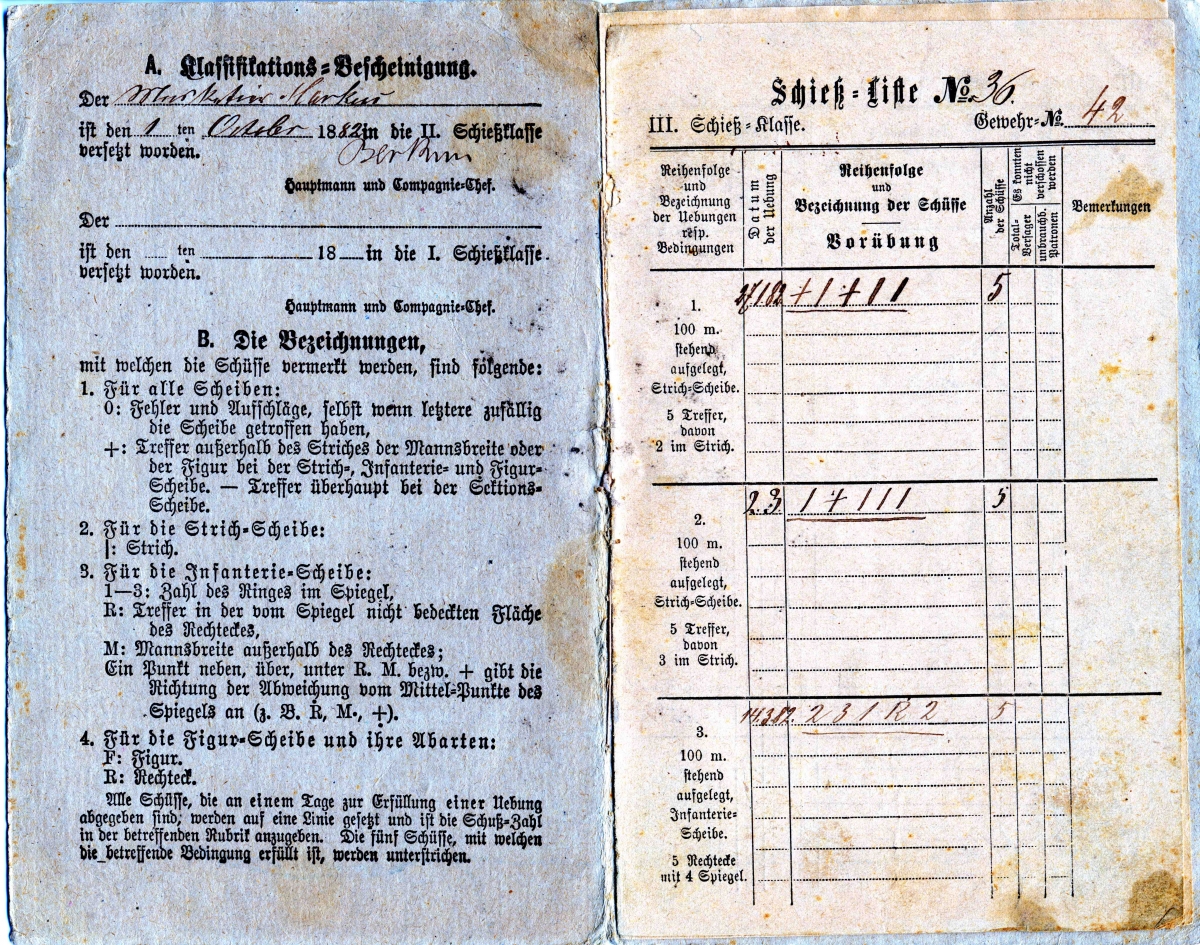 A. Klassifikations-Bescheinigung.
Der Musketier Markus
ist den 1 ten October 1882 in die II. Schießklasse
versetzt worden.
Hauptmann und Compagnie-Chef.
Der
ist den ten 18 in die I. Schießklasse
versetzt worden.
Hauptmann und Compagnie-Chef.
B. Die Bezeichnungen,
mit welchen die Schüsse vermerkt werden, sind folgende:
1. Für alle Scheiben:
0: Fehler und Aufschläge, selbst wenn letztere zufällig
die Scheibe getroffen haben,
+: Treffer außerhalb des Striches der Mannsbreite oder
der Figur bei der Strich-, Infanterie- und Figur-
Scheibe. — Treffer überhaupt bei der Sektions-
Scheibe.
2. Für die Strich-Scheibe:
|: Strich.
3. Für die Infanterie-Scheibe:
1—3: Zahl des Ringes im Spiegel,
R: Treffer in der vom Spiegel nicht bedeckten Fläche
des Rechteckes,
M: Mannsbreite außerhalb des Rechteckes;
Ein Punkt neben, über, unter R. M. bezw. + gibt die
Richtung der Abweichung vom Mittel-Punkte des
Spiegels an (z. B. R, M., +).
4. Für die Figur-Scheibe und ihre Abarten:
F: Figur.
R: Rechteck.
Alle Schüsse, die an einem Tage zur Erfüllung einer Uebung
abgegeben sind, werden auf eine Linie gesetzt und ist die Schuß-Zahl
in der betreffenden Rubrik anzugeben. Die fünf Schüsse, mit welchen
die betreffende Bedingung erfüllt ist, werden unterstrichen.
Schieß-Liste No. 36.
III. Schieß-Klasse. Gewehr-No 42
Reihenfolge
und
Bezeichnung
der Uebungen
resp.
Bedingungen
Datum
der Uebung
Reihenfolge
und
Bezeichnung der Schüsse
Vorübung
Anzahl
der Schüsse
Es konnten
nicht
verschossen
werden
Total-
Versager
unbrauchb.
Patronen
Bemerkungen
27/1 82 + 1 + 1 1 5
1.
100 m.
stehend
aufgelegt,
Strich-Scheibe.
5 Treffer,
davon
2 im Strich.
2.3. 1 + 1 1 1 5
2.
100 m.
stehend
aufgelegt,
Strich-Scheibe.
5 Treffer,
davon
3 im Strich.
14.3.82. 2 3 1 R 2 5
3.
100 m.
stehend
aufgelegt,
Infanterie-
Scheibe.
5 Rechtecke
mit 4 Spiegel.